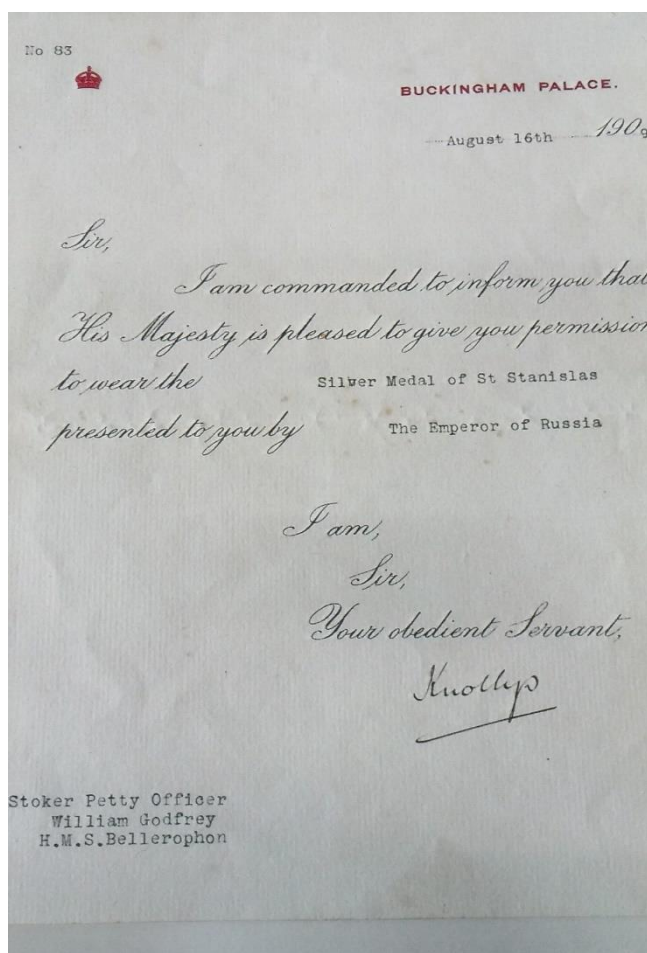 No 83
BUCKINGHAM PALACE.
August 16th 1909
Sir,
I am commanded to inform you that
His Majesty is pleased to give you permission
to wear the Silver Medal of St Stanislas
presented to you by The Emperor of Russia
I am,
Sir,
Your obedient Servant,
Knollys
Stoker Petty Officer
William Godfrey
H.M.S.Bellerophon